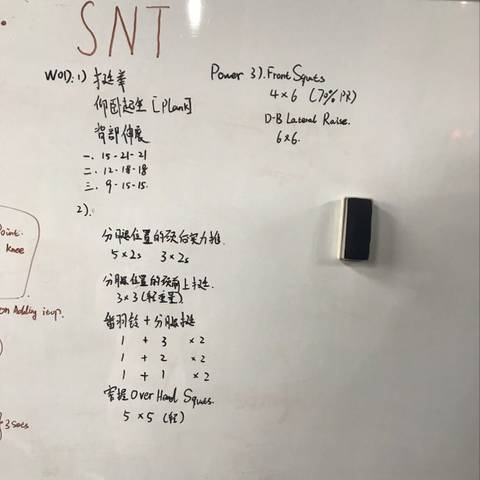 SNT
WOD: 1) 挺举
仰卧起坐 [Plank]
背部伸展
一. 15-21-21
二. 12-18-18
三. 9-15-15.
2).
分腿位置的颈后实力推.
5×2s 3×2s
分腿位置的颈前上挺.
3×3 (轻重量)
+ 分腿挺
1 + 3 ×2
1 + 2 ×2
1 + 1 ×2
宽握 Over Hand Squts.
5 ×5 (轻)
Power 3). Front Squts
4×6 (70% PR)
D-B Lateral Raise.
6×6.
Point.
Knee
on Adding icup.
3 sets